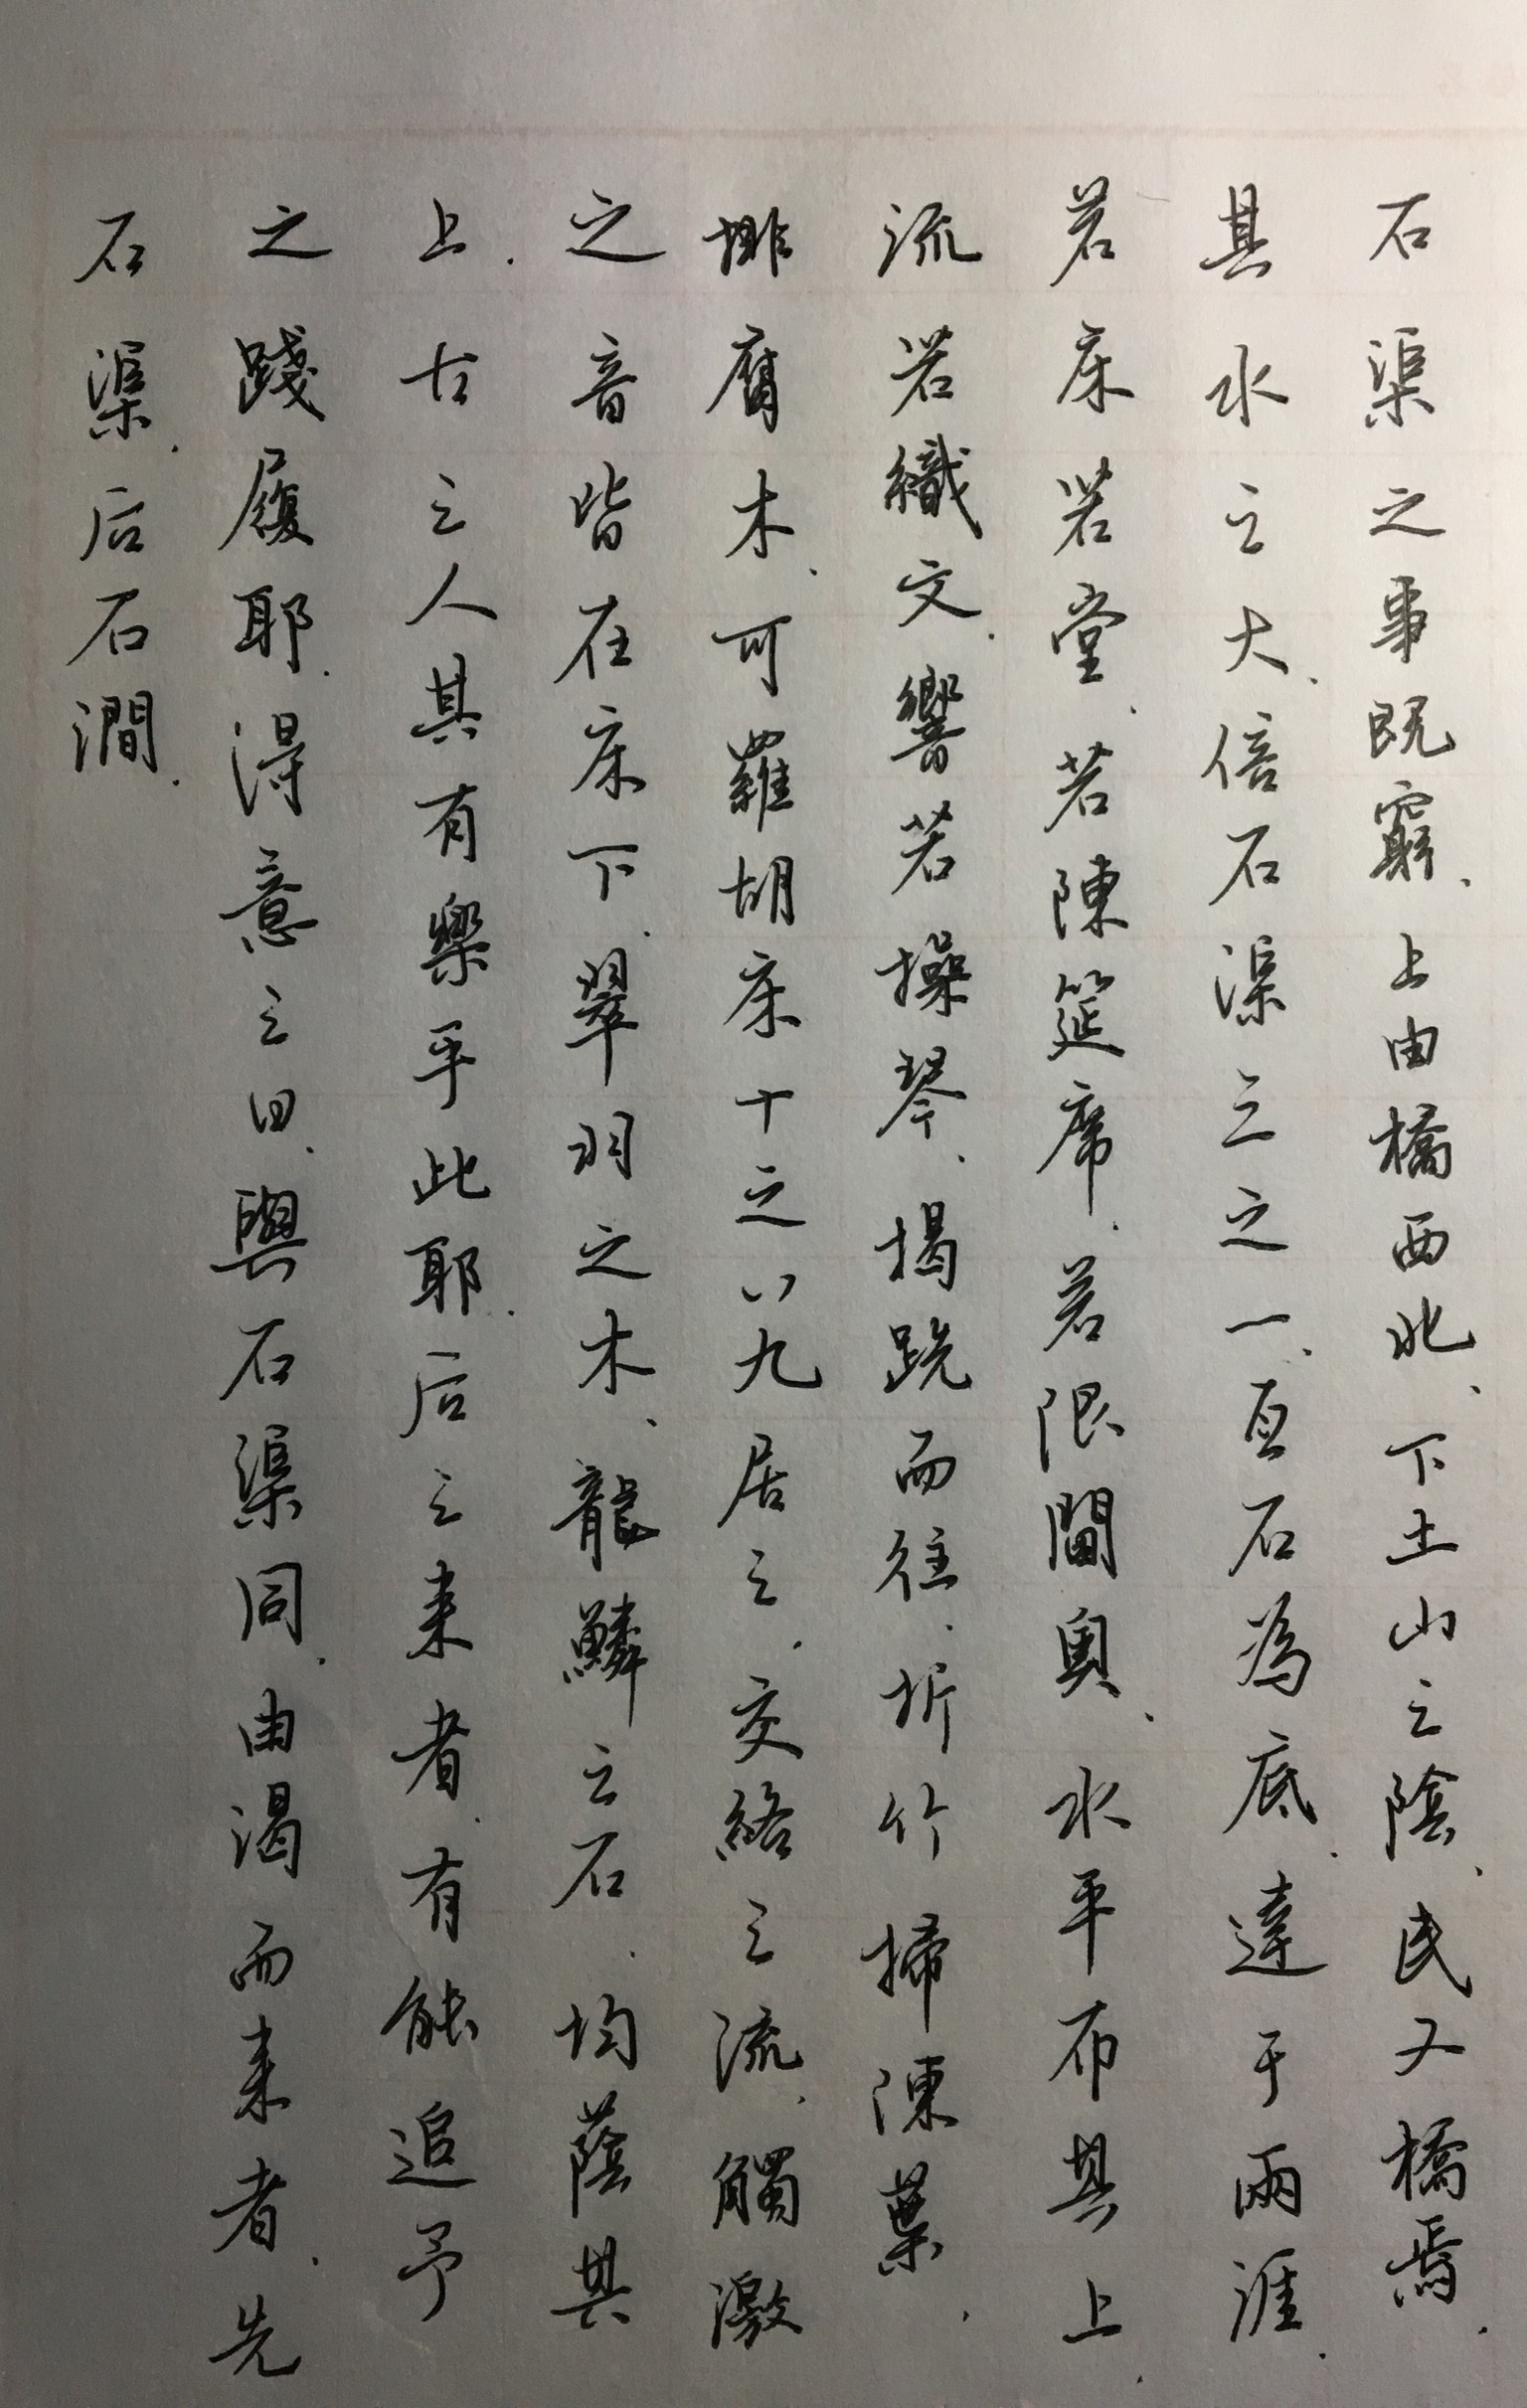 石渠之事既窮、上由橋西北、下土山之陰、民又橋焉.
其水之大、倍石渠三之一、亘石為底、達于兩涯.
若床若堂、若陳筵席、若限閫奧、水平布其上.
流若織文、響若操琴、揭跣而往、折竹掃陳葉.
排腐木、可羅胡床十之八九居之、交絡之流、觸激
之音皆在床下、翠羽之木、龍鱗之石、均蔭其
上.古之人其有樂乎此耶.后之来者、有能追予
之踐履耶.得意之日、與石渠同.由渴而来者、先
石渠.后石澗.